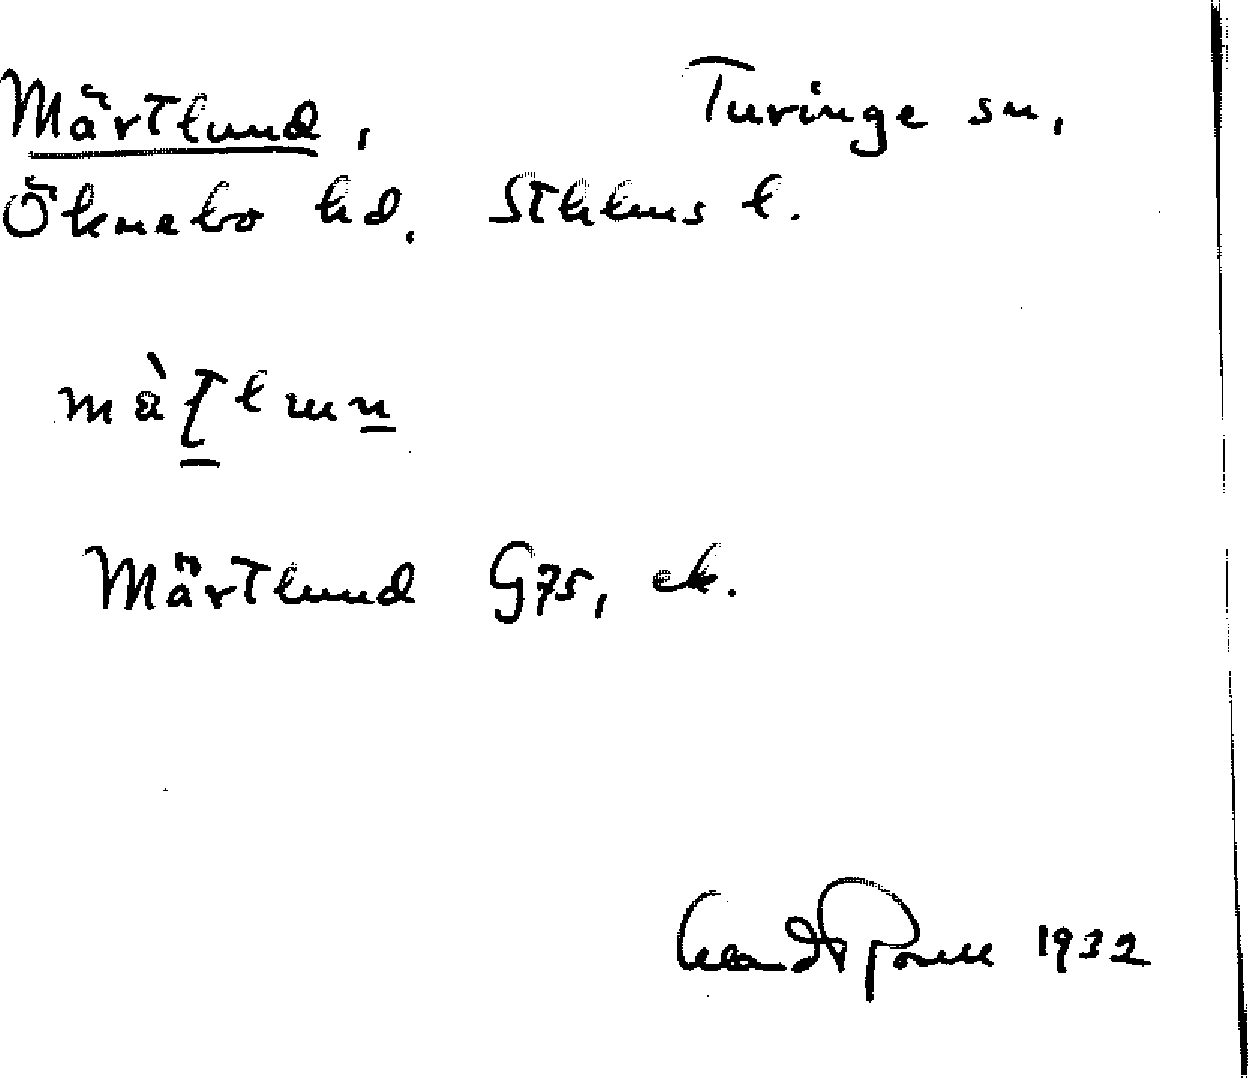 Märtlund, Turinge sn,
Öknebo hd. Sthlms l.
Märtlund G75, ek.
1932